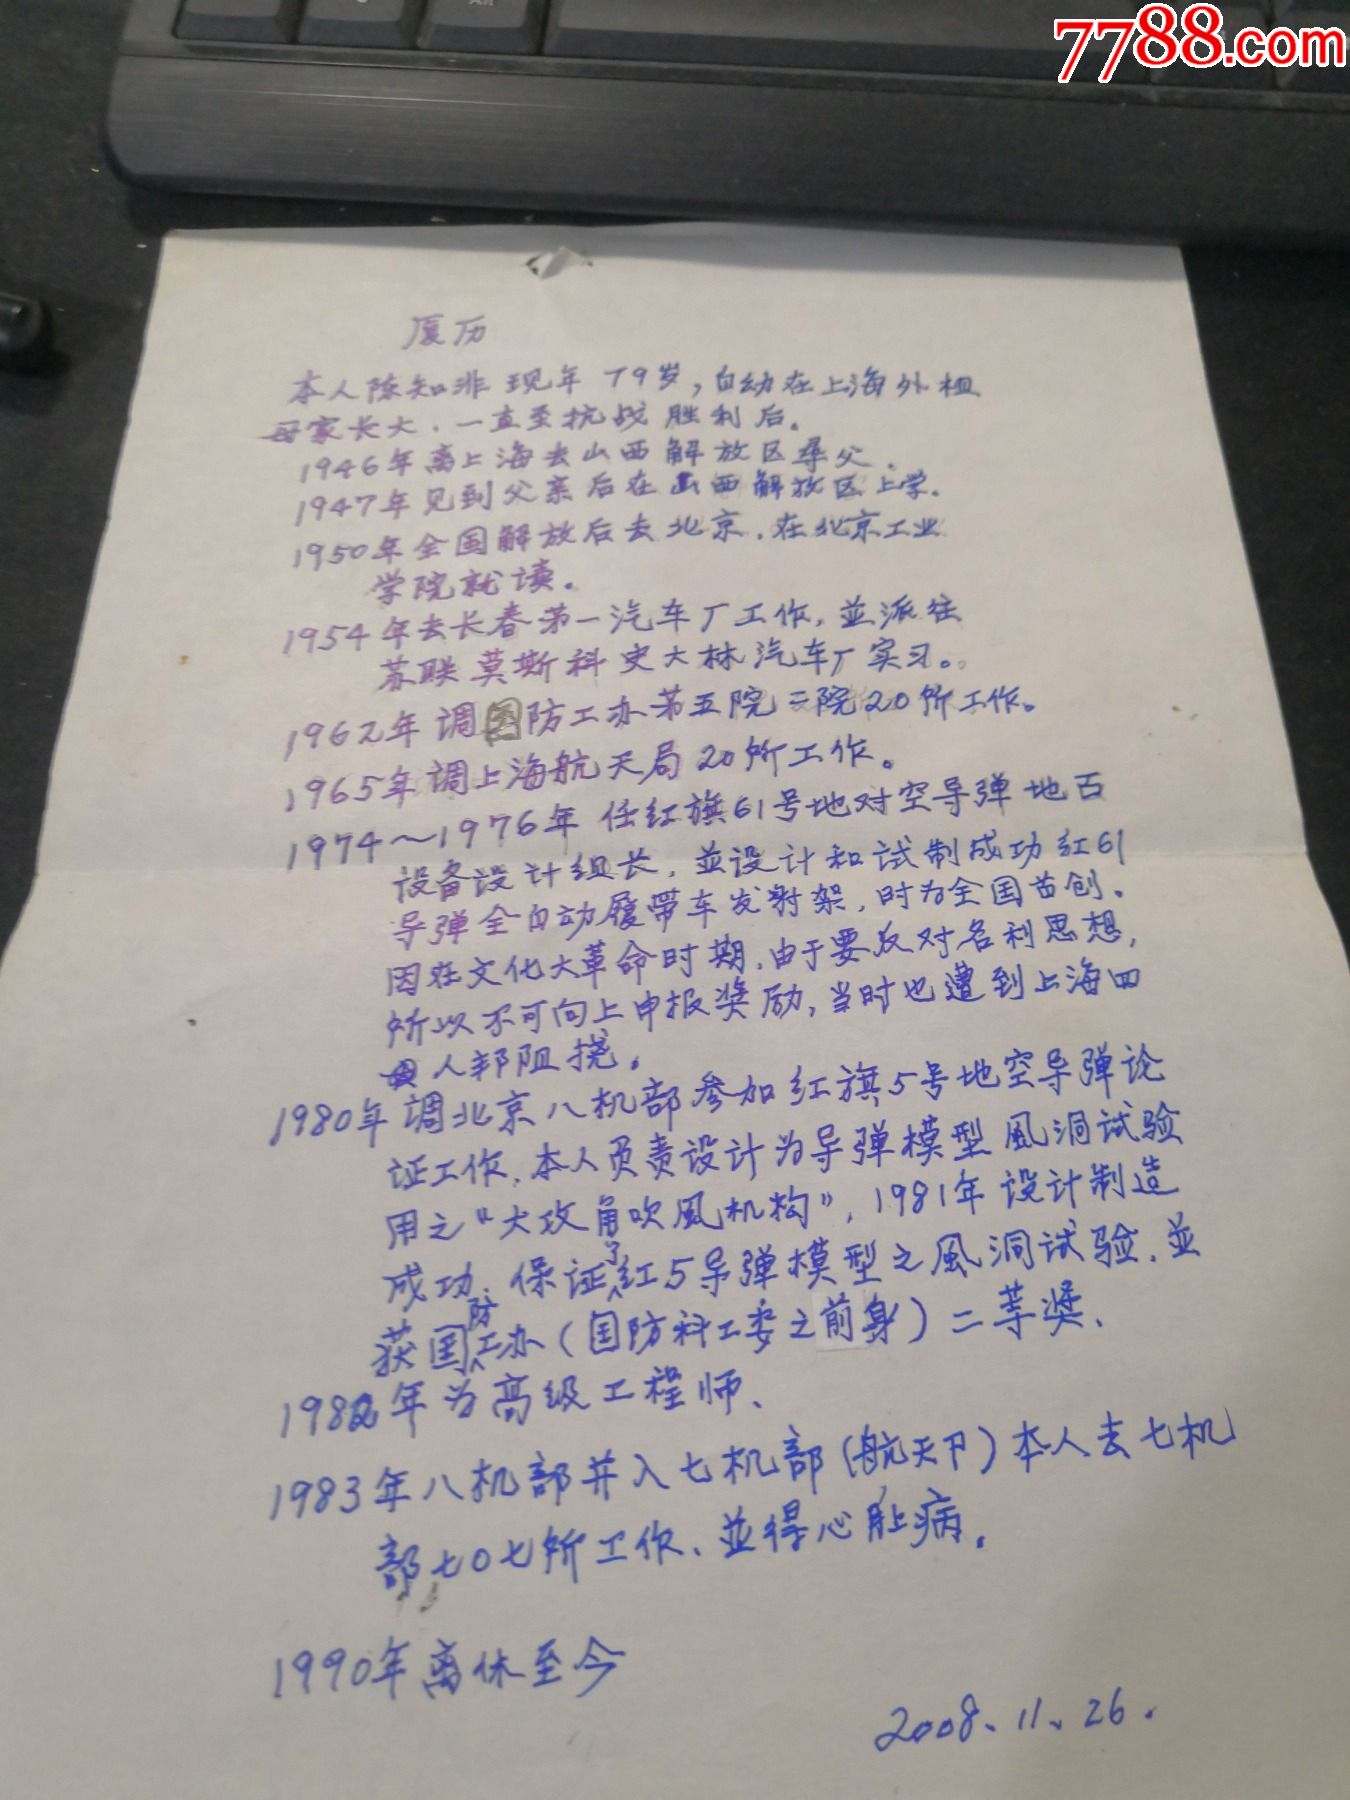 7788.com
履历
本人陈知非 现年79岁，自幼在上海外祖
母家长大．一直至抗战胜利后。
1946年离上海去山西解放区寻父．
1947年见到父亲后在山西解放区上学．
1950年全国解放后去北京．在北京工业
学院就读。
1954年去长春第一汽车厂工作，並派往
苏联莫斯科史大林汽车厂实习。
1962年调国防工办第五院二院20所工作。
1965年调上海航天局20所工作。
1974～1976年 任红旗61号地对空导弹地面
设备设计组长，並设计和试制成功红61
导弹全自动履带车发射架，时为全国首创．
因在文化大革命时期，由于要反对名利思想，
所以不可向上申报奖励，当时也遭到上海四
人邦阻挠。
1980年调北京八机部参加红旗5号地空导弹论
证工作，本人负责设计为导弹模型風洞试验
用之“大攻角吹風机构”，1981年设计制造
成功．保证了红5导弹模型之風洞试验．並
获国防工办（国防科工委之前身）二等奖．
1982年为高级工程师、
1983年八机部并入七机部（航天卩）本人去七机
部七０七所工作、並得心脏病．
1990年离休至今
2008、11、26．